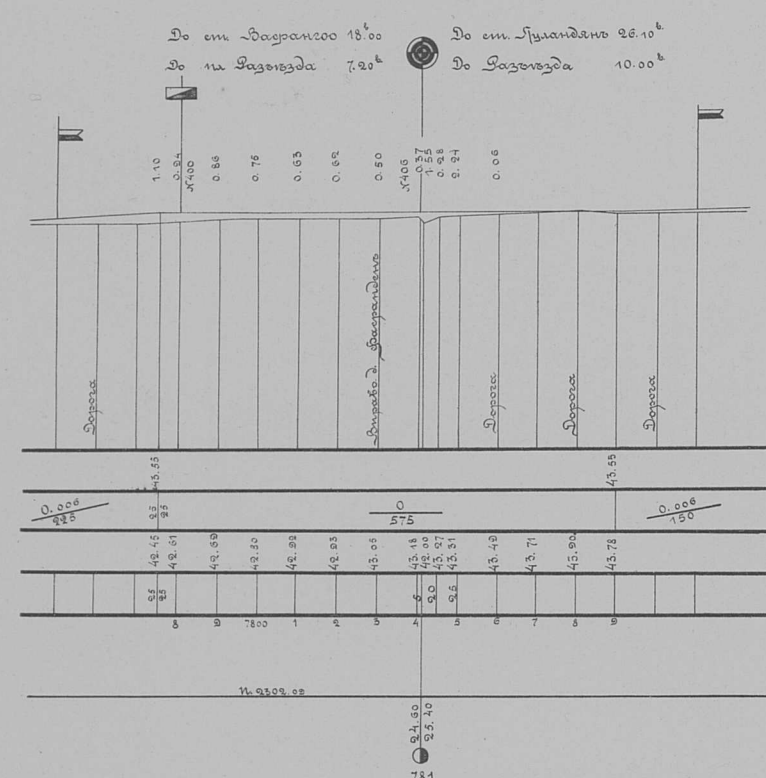 До ст. Вафангоо 18.00 в.
До ст. Гуландянь 26.10 в.
До пл. Разъѣзда 7.20 в.
До Разъѣзда 10.00 в.
1.10 0.94 №400 0.86 0.76 0.63 0.62 0.50 №406 0.37 1.55 0.28 0.24 0.06
Дорога Вправо д. Дорога Дорога Дорога
43.55 43.55
0.006 0 0.006
225 25 25 575 150
42.45 42.61 42.69 42.80 42.92 42.93 43.05 43.18 42.00 43.27 43.31 43.49 43.71 43.90 43.78
25 25 6 20 25
8 9 7800 1 2 3 4 5 6 7 8 9
П. 2302.02
24.60 25.40
781